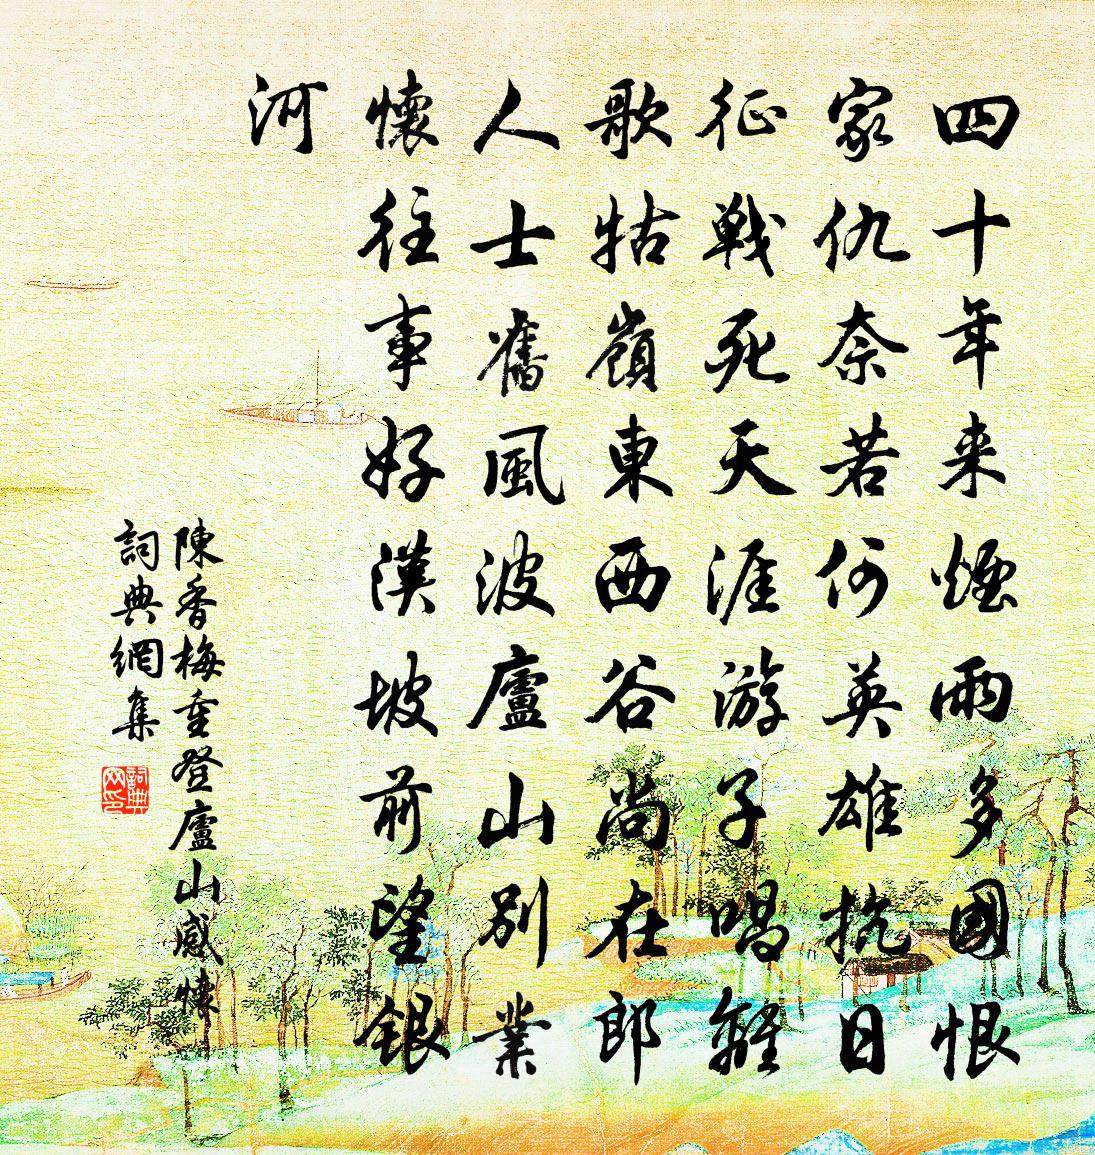 四十年来煙雨多國恨
家仇奈若何英雄抗日
征戰死天涯游子唱離
歌牯嶺東西谷尚在郎
人士舊風波廬山別業
懷往事好漢坡前望銀
河
陳香梅重登廬山感懷
詞典網集
詞典网印